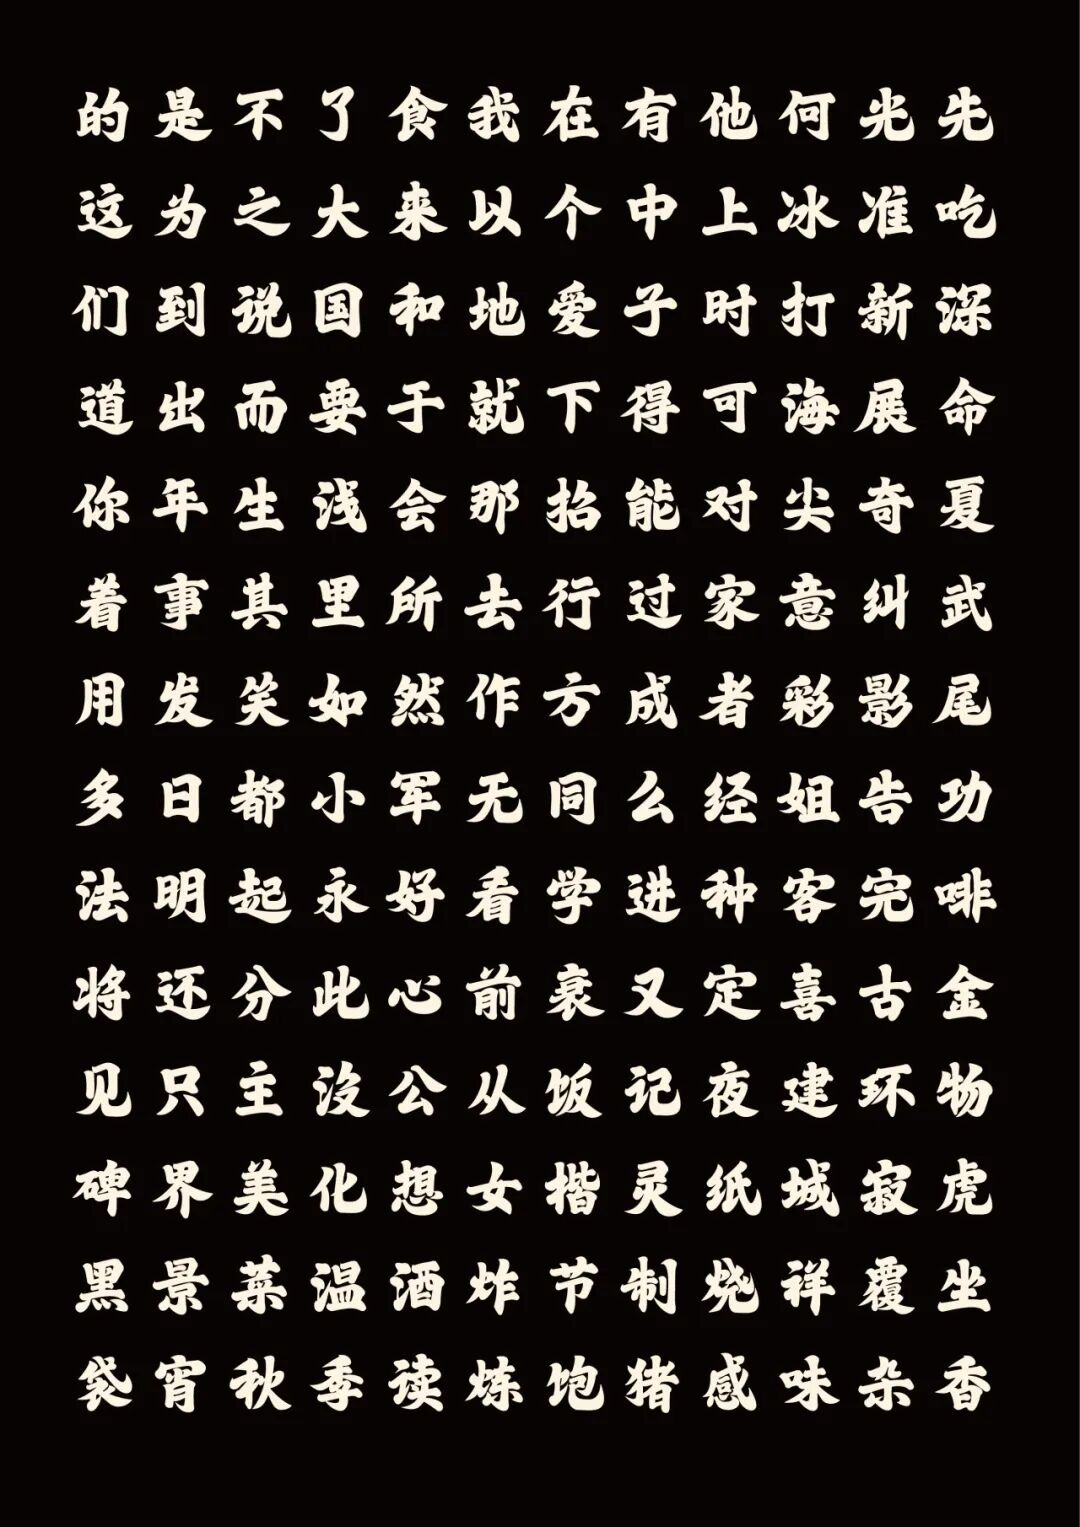 的是不了食我在有他何光先
这为之大来以个中上冰准吃
们到说国和地爱子时打新深
道出而要于就下得可海展命
你年生浅会那招能对尖奇夏
着事其里所去行过家意纠武
用发笑如然作方成者彩影尾
多日都小军无同么经姐告功
法明起永好看学进种客完啡
将还分此心前衰又定喜古金
见只主没公从饭记夜建环物
碑界美化想女楷灵纸城寂虎
黑景菜温酒炸节制烧祥覆坐
袋宵秋季读炼饱猪感味杂香